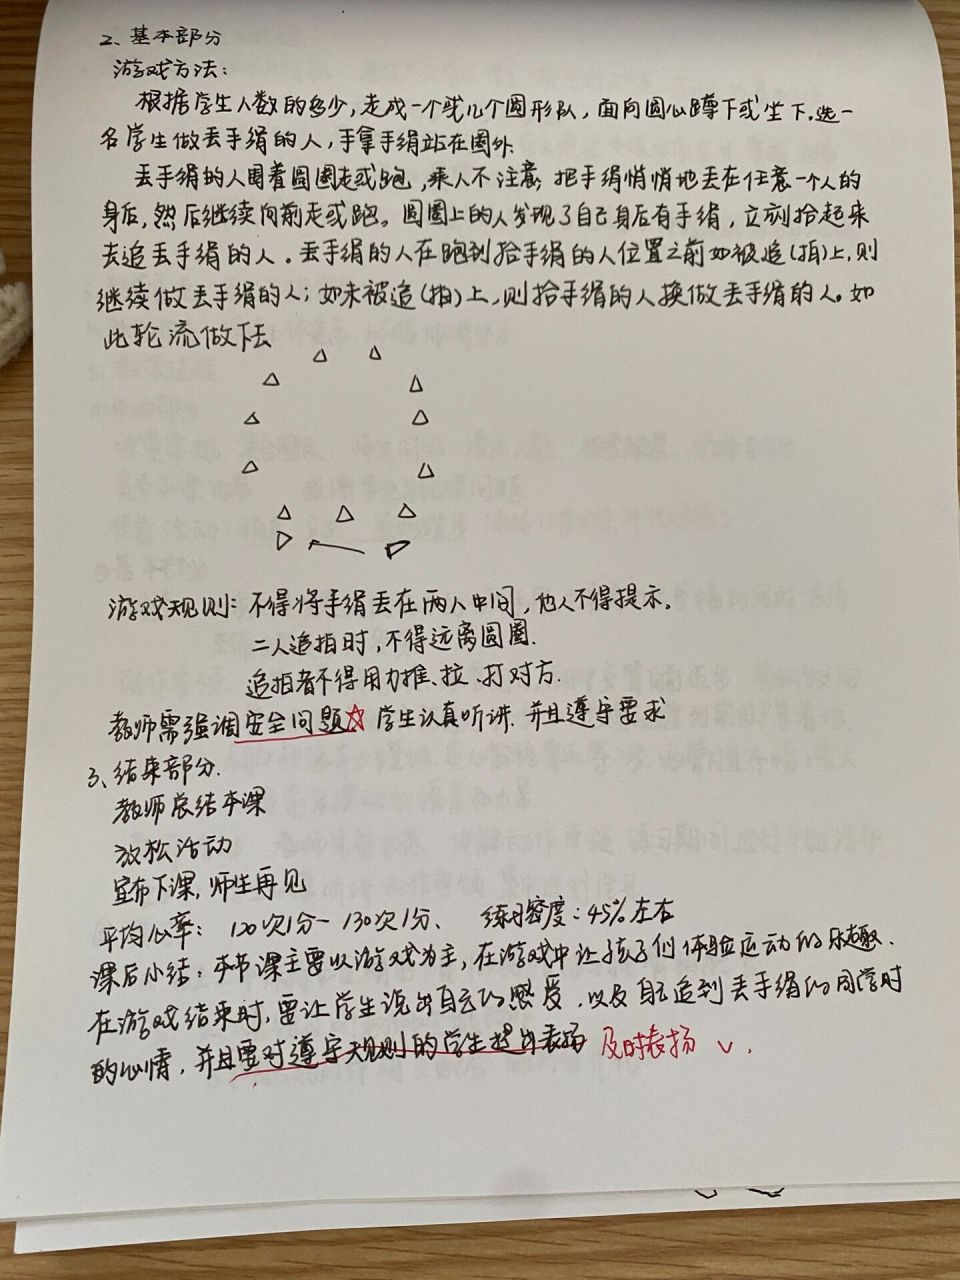 2、基本部分
游戏方法:
根据学生人数的多少,走成一个或几个圆形队,面向圆心蹲下或坐下.选一
名学生做丢手绢的人,手拿手绢站在圈外.
丢手绢的人围着圆圈走或跑,乘人不注意,把手绢悄悄地丢在任意一个人的
身后,然后继续向前走或跑。圆圈上的人发现了自己身后有手绢,立刻拾起来
去追丢手绢的人。丢手绢的人在跑到拾手绢的人位置之前如被追(拍)上,则
继续做丢手绢的人;如未被追(拍)上,则拾手绢的人换做丢手绢的人。如
此轮流做下去
游戏规则:不得将手绢丢在两人中间,他人不得提示。
二人追拍时,不得远离圆圈.
追拍者不得用力推、拉、打对方.
教师需强调安全问题☆学生认真听讲.并且遵守要求
3、结束部分.
教师总结本课
放松活动
宣布下课,师生再见
平均心率:120次1分-130次1分、练习密度:45%左右
课后小结:本节课主要以游戏为主,在游戏中让孩子们体验运动的乐趣.
在游戏结束时,要让学生说出自己的感受.以及自己追到丢手绢的同学时
的心情,并且要对遵守规则的学生提出表扬 及时表扬 √.